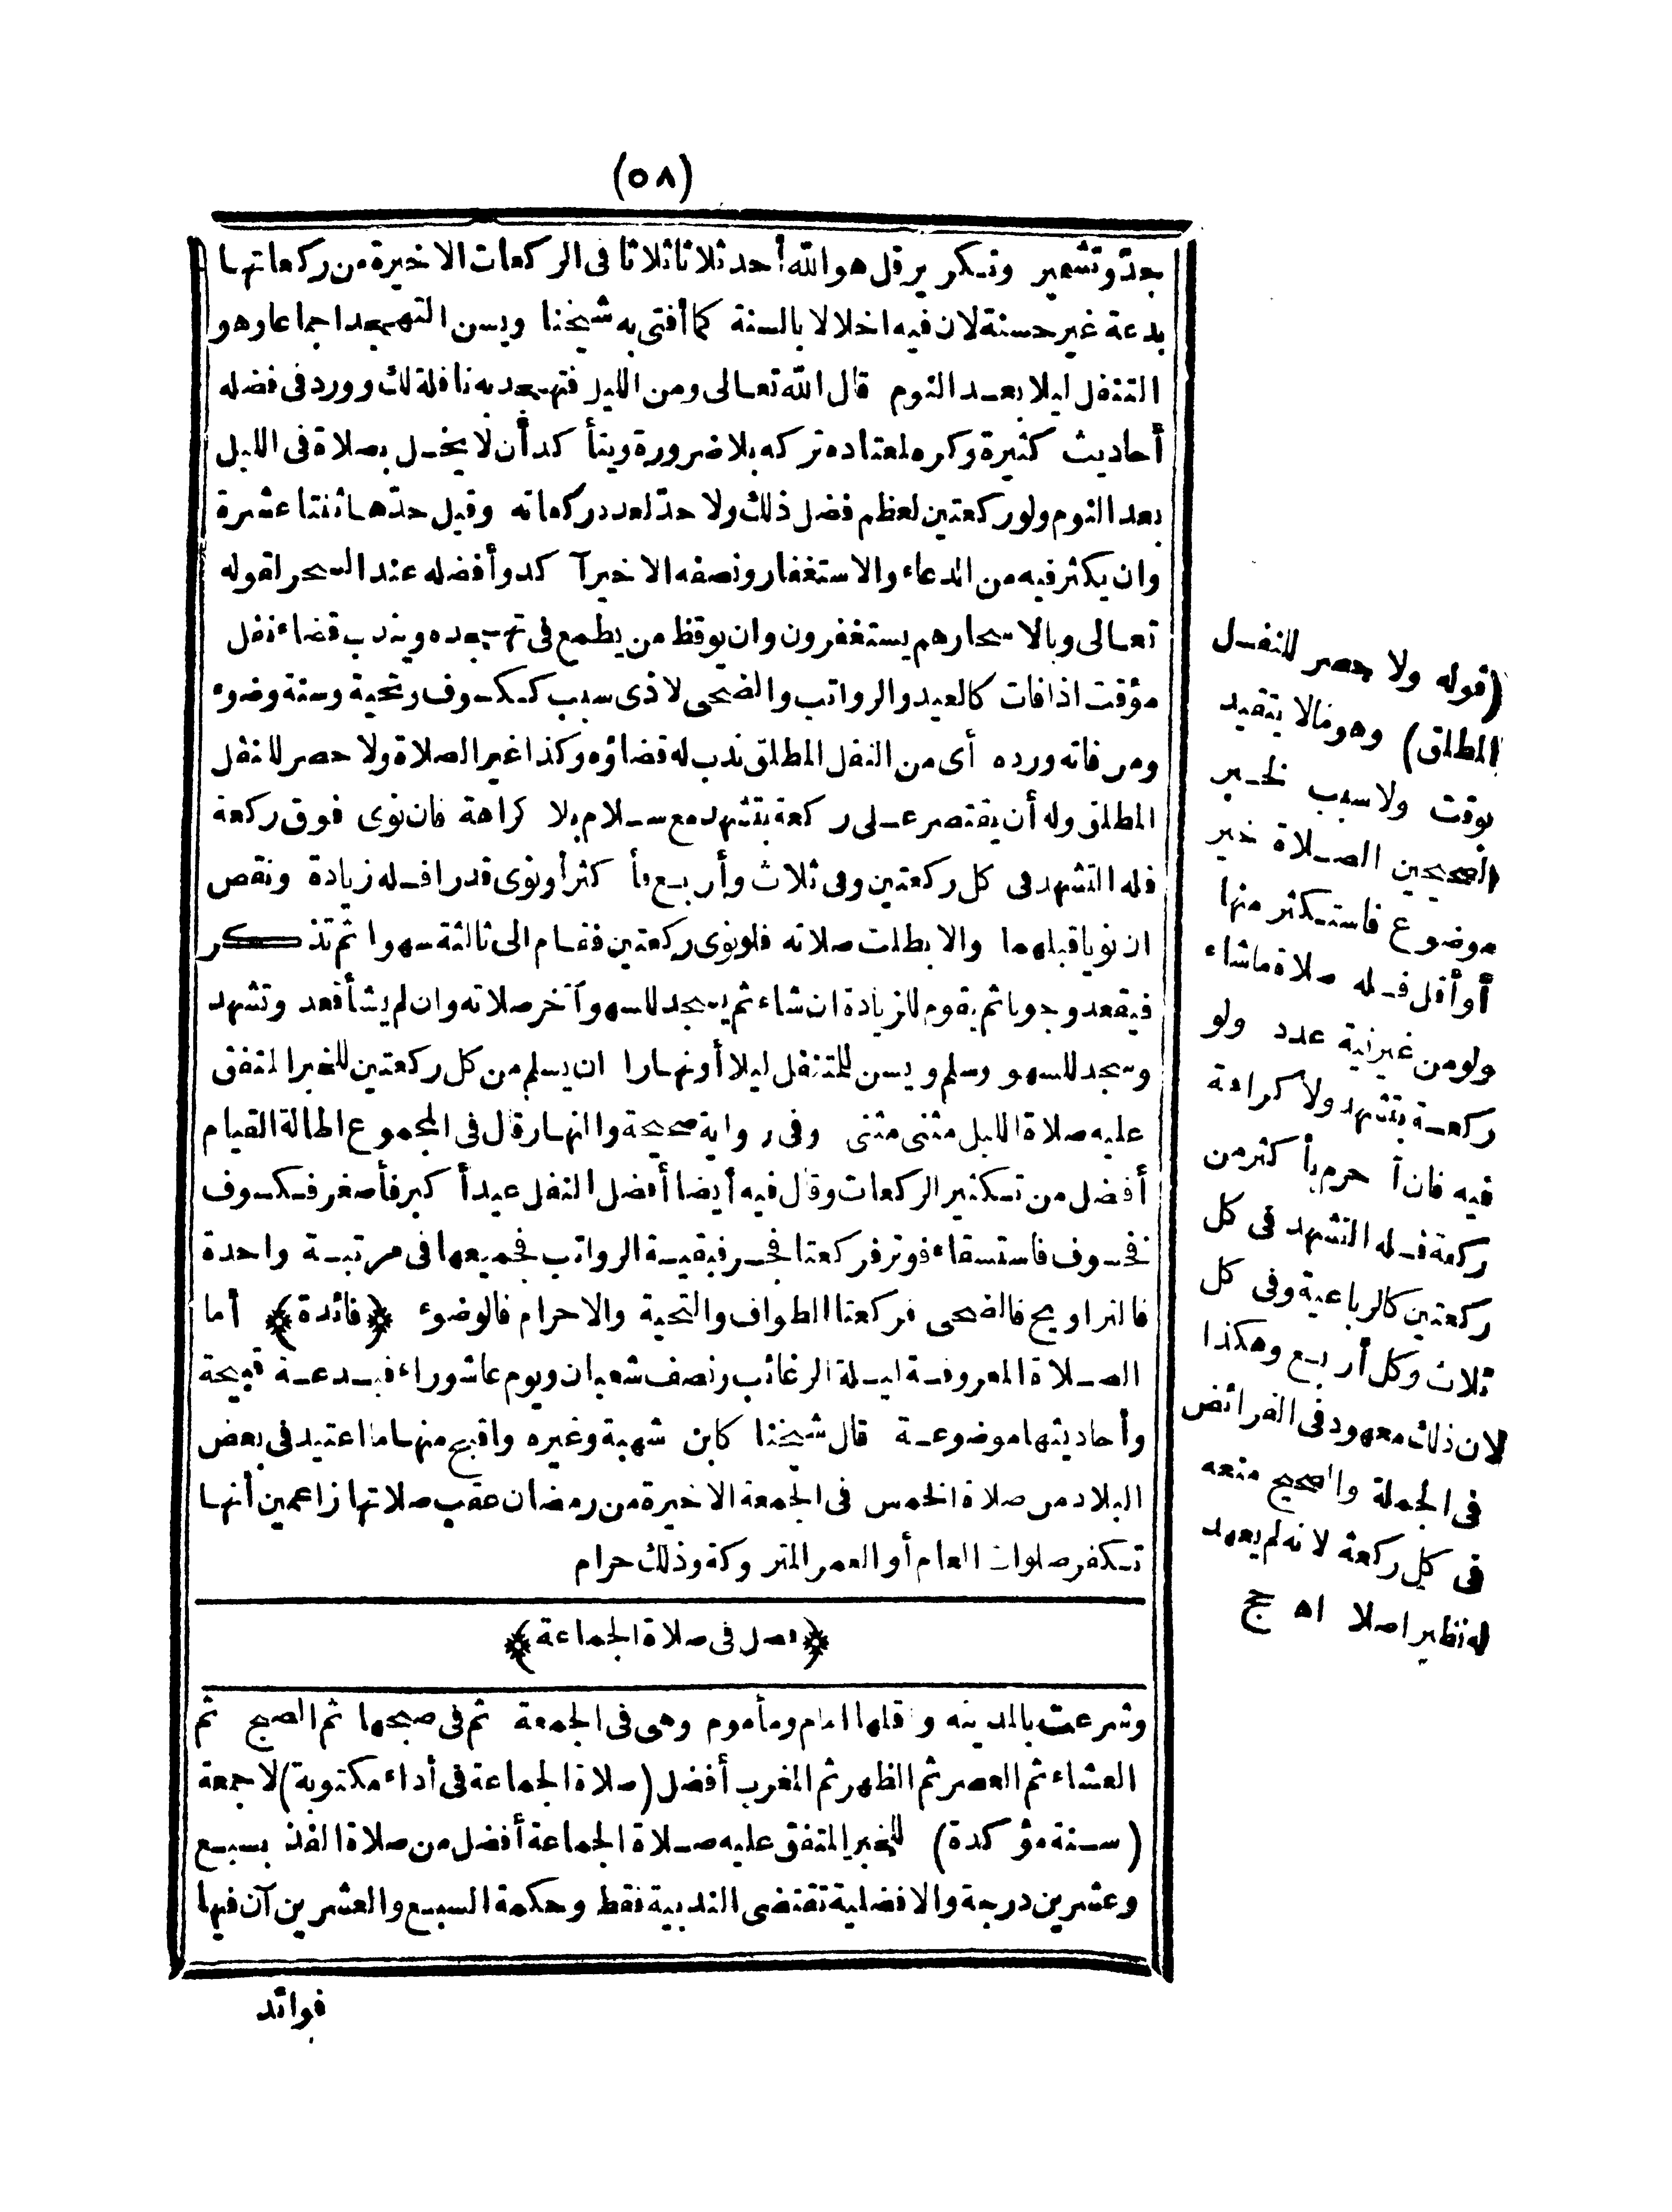 (٥٨)
بجدّ وتشمير وتكرير قل هو الله أحد ثلاثا ثلاثا فى الركعات الاخيرة من ركعاتها
بدعة غير حسنة لان فيه اخلالا بالسنة كما أفتى به شيخنا ويسن التهجد اجماعا وهو
التنفل ليلا بعد النوم قال الله تعالى ومن الليل فتهجد به نافلة لك وورد فى فضله
أحاديث كثيرة وكره لمعتاده تركه بلا ضرورة ويتأكد أن لا يخل بصلاة فى الليل
بعد النوم ولو ركعتين لعظم فضل ذلك ولا حدّ لعدد ركعاته وقيل حدّها ثنتا عشرة
وان يكثر فيه من الدعاء والاستغفار ونصفه الاخير آكد وأفضله عند السحر لقوله
تعالى وبالاسحار هم يستغفرون وان يوقظ من يطمع فى تهجده ويندب قضاء نفل
مؤقت اذا فات كالعيد والرواتب والضحى لا ذى سبب ككسوف وتحية وسنة وضوء
ومن فاته ورده أى من النفل المطلق ندب له قضاؤه وكذا غير الصلاة ولا حصر للنفل
المطلق وله أن يقتصر على ركعة بتشهد مع سلام بلا كراهة فان نوى فوق ركعة
فله التشهد فى كل ركعتين وفى ثلاث وأربع فأكثر أو نوى قدرا فله زيادة ونقص
ان نويا قبلهما والا بطلت صلاته فلو نوى ركعتين فقام الى ثالثة سهوا ثم تذكر
فيقعد وجوبا ثم يقوم للزيادة ان شاء ثم يسجد للسهو آخر صلاته وان لم يشأ قعد وتشهد
وسجد للسهو وسلم ويسن للمتنفل ليلا أو نهارا ان يسلم من كل ركعتين للخبر المتفق
عليه صلاة الليل مثنى مثنى وفى رواية صحيحة والنهار قال فى المجموع اطالة القيام
أفضل من تكثير الركعات وقال فيه أيضا أفضل النفل عيد أكبر فأصغر فكسوف
فخسوف فاستسقاء فوتر فركعتا فجر فبقية الرواتب فجميعها فى مرتبة واحدة
فالتراويح فالضحى فركعتا الطواف والتحية والاحرام فالوضوء ﴿فائدة﴾ أما
الصلاة المعروفة ليلة الرغائب ونصف شعبان ويوم عاشوراء فبدعة قبيحة
وأحاديثها موضوعة قال شيخنا كابن شهبة وغيره واقبح منها ما اعتيد فى بعض
البلاد من صلاة الخمس فى الجمعة الاخيرة من رمضان عقب صلاتها زاعمين أنها
تكفر صلوات العام أو العمر المتروكة وذلك حرام
﴿فصل فى صلاة الجماعة﴾
وشرعت بالمدينه وأقلها امام ومأموم وهى فى الجمعة ثم فى صبحها ثم الصبح ثم
العشاء ثم العصر ثم الظهر ثم المغرب أفضل (صلاة الجماعة فى أداء مكتوبة) لا جمعة
(سنة مؤكدة) للخبر المتفق عليه صلاة الجماعة أفضل من صلاة الفذ بسبع
وعشرين درجة والافضلية تقتضى الندبية فقط وحكمة السبع والعشرين أن فيها
فوائد
(قوله ولا حصر للنفل
المطلق) وهو ما لا يتقيد
بوقت ولا سبب لخبر
الصحيحين الصلاة خير
موضوع فاستكثر منها
أو أقل فله صلاة ما شاء
ولو من غير نية عدد ولو
ركعة بتشهد ولا كراهة
فيه فان أحرم بأكثر من
ركعة فله التشهد فى كل
ركعتين كالرباعية وفى كل
ثلاث وكل أربع وهكذا
لان ذلك معهود فى الفرائض
فى الجملة والصحيح منعه
فى كل ركعة لانه لم يعهد
له نظير اصلا اه ج